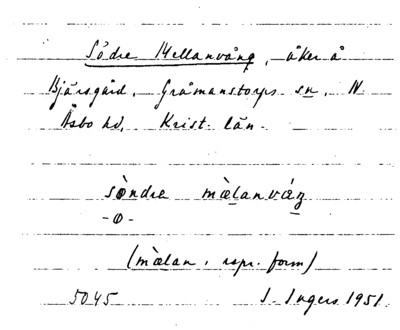 Södre Mellanvång, åker å
Bjärsgård, Gråmanstorps sn, N
Åsbo hd, Krist. län.
sòndre mælanváŋ
-o-
(mælan, rspr. form)
5045 I. Ingers 1951.